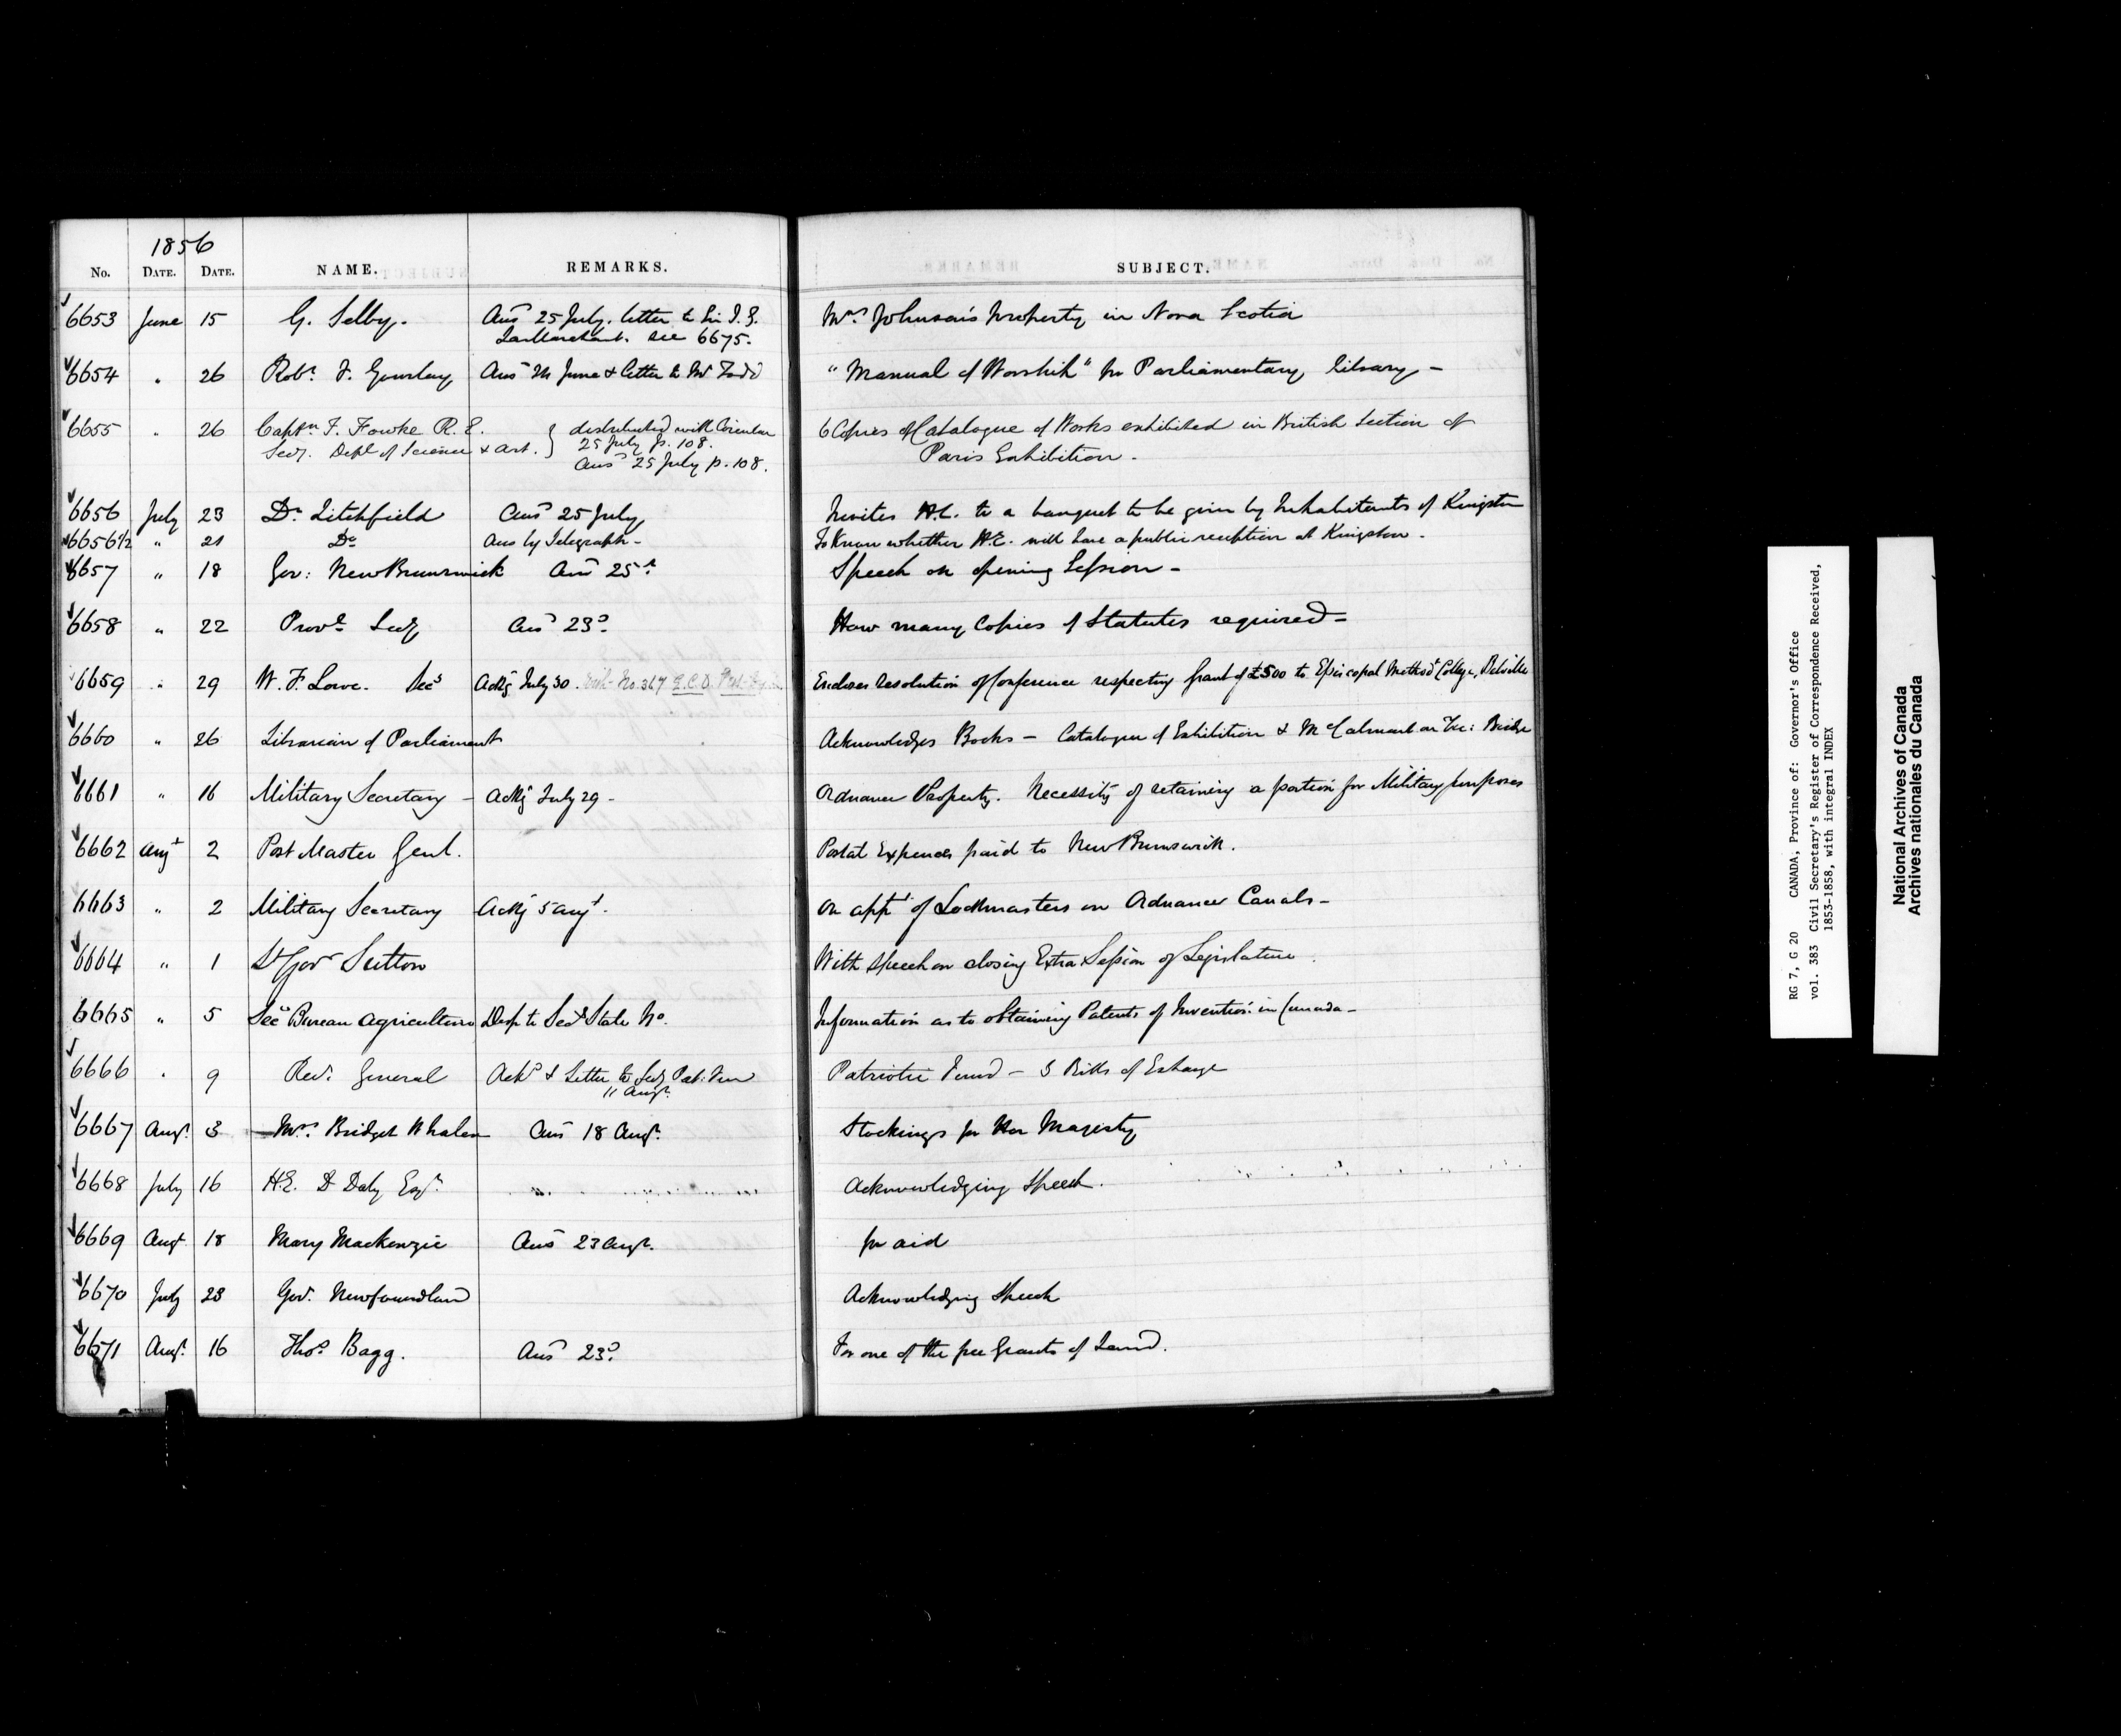 1856
No. DATE. DATE. NAME. REMARKS. SUBJECT.
6653 June 15 G. Selby. Ansd 25 July. letter to Sir J. G. Mrs Johnson's property in Nova Scotia
LeMarchant. see 6675.
6654 " 26 Robt. F. Gourlay Ansd June & letter to Mr Todd "Manual of Worship" for Parliamentary library -
6655 " 26 Captn F. Fowke R.E. distributed with Circular 6 Copies of Catalogue of Works exhibited in British Section of
Secy. Dept of Science & Art. } 25 July p. 108. Paris Exhibition.
Ansd 25 July p. 108.
6656 July 23 Dr Litchfield Ansd 25 July Invites H.E. to a banquet to be given by Inhabitants of Kingston
6656 1/2 " 21 Do Ans by Telegraph- To Know whether H.E. will have a public reception at Kingston.
6657 " 18 Gov: New Brunswick Ansd 25th Speech on opening Session -
6658 " 22 Provl Secy Ansd 23d. How many Copies of Statutes required -
6659 " 29 W. F. Lowe. Secy Ackg July 30. No. 367 E.C.O. Encloses Resolution of Conference respecting Grant of £500 to Episcopal Methodt College, Belville
6660 " 26 Librarian of Parliament Acknowledges Books - Catalogue of Exhibition & McCalmont on Vic: Bridge
6661 " 16 Military Secretary - Ackg July 29 - Ordnance Property. Necessity of retaining a portion for Military purposes
6662 Augt 2 Post Master Genl. Postal Expenses paid to New Brunswick.
6663 " 2 Military Secretary Ackg 5 Augt. On appt of Lockmasters on Ordnance Canals -
6664 " 1 Lt Govr Sutton With Speech on closing Extra Session of Legislature.
6665 " 5 Secy Bureau Agriculture Desp to Secy State No. Information as to obtaining Patents of Invention in Canada -
6666 " 9 Rec. General Ackd & Letter to Secy Pat: Fun Patriotic Fund - 3 Bills of Exchange
11 Augt.
6667 Augt. 3 Mrs. Bridget Whalen Ansd 18 Augt. Stockings for Her Majesty
6668 July 16 H.E. D Daly Esqr. Acknowledging Speech.
6669 Augt 18 Mary Mackenzie Ansd 23 Augt. for aid
6670 July 23 Gov. Newfoundland Acknowledging Speech
6671 Augt. 16 Thos. Bagg. Ansd 23d. For one of the free Grants of Land.
RG 7, G 20 CANADA, Province of: Governor's Office
vol. 383 Civil Secretary's Register of Correspondence Received,
1853-1858, with integral INDEX
National Archives of Canada
Archives nationales du Canada